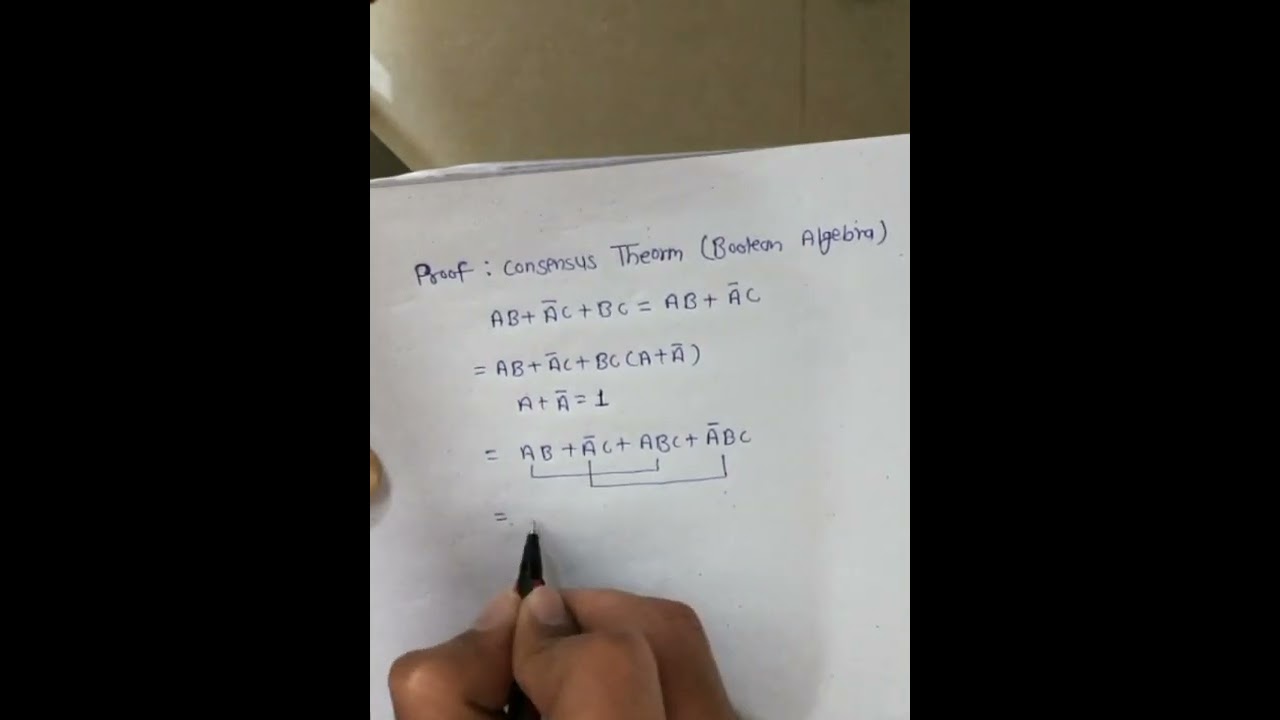 Proof : Consensus Theorm (Boolean Algebra)
AB + A̅C + BC = AB + A̅C
= AB + A̅C + BC (A + A̅)
A + A̅ = 1
= AB + A̅C + ABC + A̅BC
=